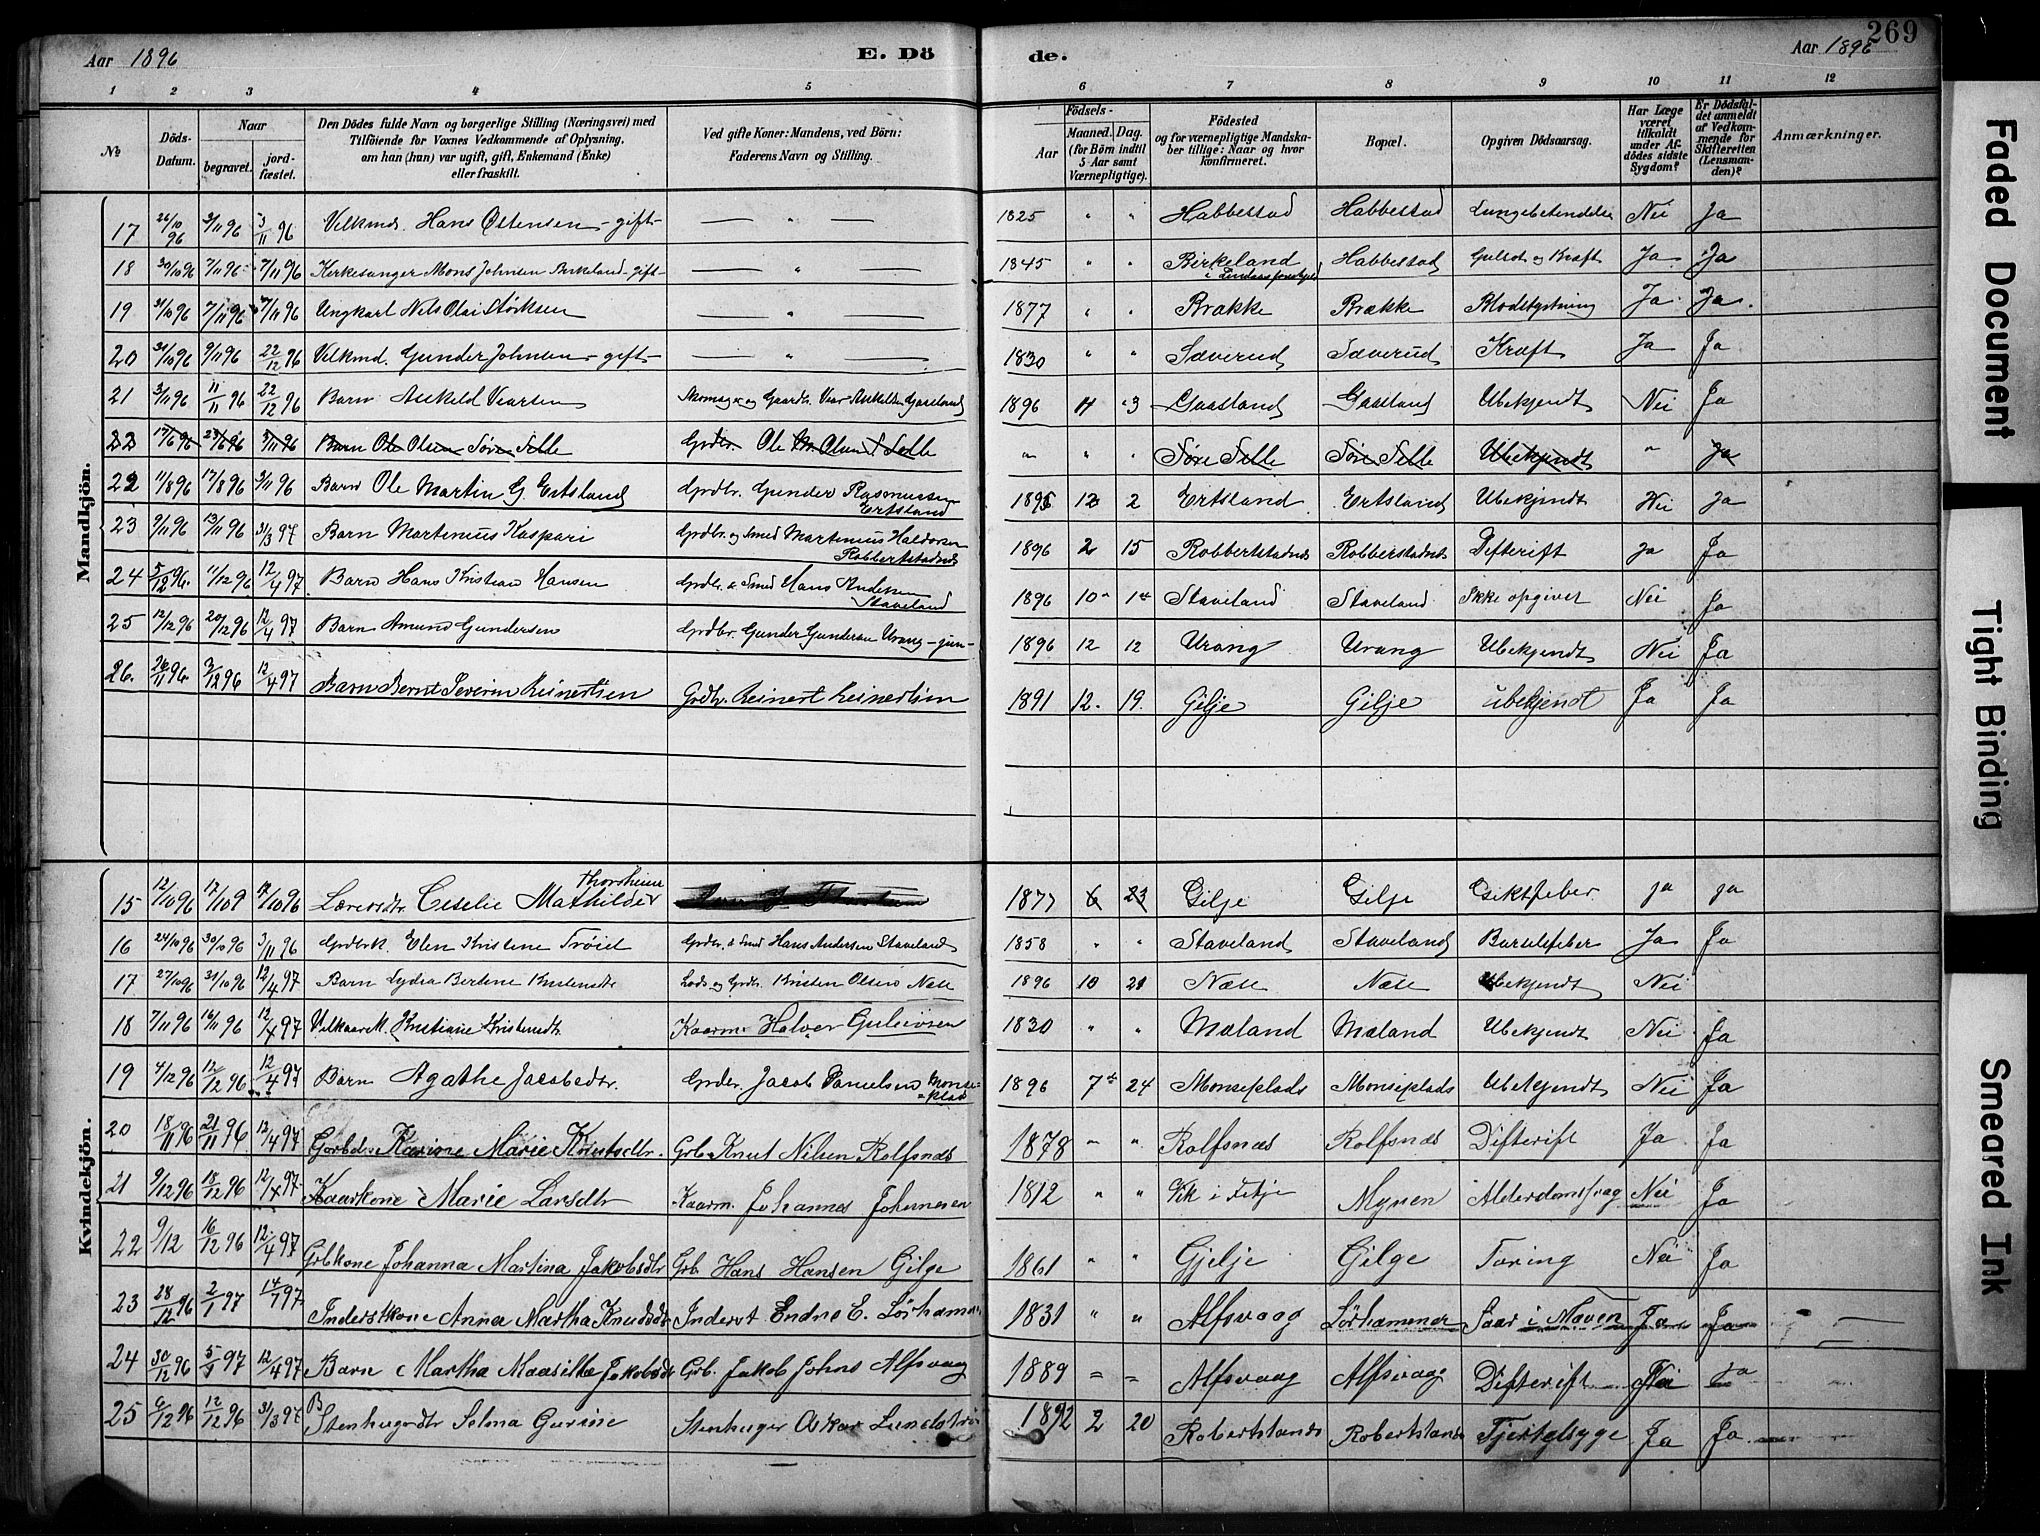 269
Aar 1896 E. Dö de. Aar 1896
1 2 3 4 5 6 7 8 9 10 11 12
№ Döds-Datum. Naar begravet. jord-fæstet. Den Dödes fulde Navn og borgerlige Stilling (Næringsvei) med Tilföiende for Voxnes Vedkommende af Oplysning, om han (hun) var ugift, gift, Enkemand (Enke) eller fraskilt. Ved gifte Koner: Mandens, ved Börn: Faderens Navn og Stilling. Födsels- Aar Maaned. Dag. (for Börn indtil 5 Aar samt Værnepligtige). Födested og for værnepligtige Mandska-ber tillige: Naar og hvor konfirmeret. Bopæl. Opgiven Dödsaarsag. Har Læge været tilkaldt under Af-dödes sidste Sygdom? Er Dödsfal-det anmeldt af Vedkom-mende for Skifteretten (Lensman-den)? Anmærkninger.
Mandkjön.
17 26/10 96 3/11 96 3/11 96 Velkmd. Hans Ostensen - gift - — " — 1825 " " Habbestad Habbestad Lungebetendelse Nei Ja
18 30/10 96 7/11 96 7/11 96 Kirkesanger Mons Johnsen Birkeland - gift - — " — 1845 " " Birkeland i Habbestad og Kræft Ja Ja
19 31/10 96 7/11 96 7/11 96 Ungkarl Nels Olai Störksen — " — 1877 " " Brække Brække Blodstyrtning Ja Ja
20 31/10 96 9/11 96 22/12 96 Velkmd. Gunder Johnsen - gift - — " — 1830 " " Sæverud Sæverud Kræft Ja Ja
21 3/11 96 11/11 96 22/12 96 Barn Askeld Vearsen og Gaardbr. Vear Askeldsen Gaasland 1896 11 3 Gaasland Gaasland Ubekjendt Nei Ja
22 17/6 96 23/6 96 3/11 96 Barn Ole Olsen Söre Selle Grdbr. Ole Olsen S Selle " " " Söre Selle Söre Selle Ubekjendt " Ja
22 11/8 96 17/8 96 3/11 96 Barn Ole Martin G. Ertsland Grdbr. Gunder Rasmussen Ertsland 1895 12 2 Ertsland Ertsland Ubekjendt Nei Ja
23 9/11 96 13/11 96 31/3 97 Barn Martenius Kaspari Grdbr. og Smed Martenius Haldorsen Robbertstadnes 1896 2 15 Robbertstadnes Robberstadnes Difterift Ja Ja
24 5/12 96 11/12 96 12/4 97 Barn Hans Kristian Hansen Grdbr. & Smed Hans Andersen Staveland 1896 10 1 Staveland Staveland Ikke opgivet Nei Ja
25 12/12 96 20/12 96 12/4 97 Barn Amund Gundersen Grdbr. Gunder Gundersen Urang - jun - 1896 12 12 Urang Urang Ubekjendt Nei Ja
26. 26/11 96. 3/12 96 12/4 97 Barn Bernt Severin Reinertsen Grdbr. Reinert Reinertsen 1891 12. 19. Gilje Gilje ubekjendt Ja Ja
Kvindekjön.
15 12/10 96 17/10 9 17/10 96 Lærersdtr. Ceselie Mathilde Thorsheim 1877 6 23 Gilje Gilje Giktfeber Ja Ja
16 24/10 96 30/10 96 3/11 96 Grdbrk. Elen Kristene Tröiel Grdbr. & Smed Hans Andersen Staveland 1858 " " Staveland Staveland Barselfeber Ja Ja
17 27/10 96 31/10 96 12/4 97 Barn Lydia Bertine Kristensdtr Lods og Grdbr. Kristen Olsen Næse 1896 10 21 Næse Næse Ubekjendt Nei
18 7/11 96 16/11 96 12/4 97 Velkaarsk. Kristiane Kristensdtr Kaarm. Halvor Guleivsen 1830 " " Mæland Mæland Ubekjendt Nei Ja
19 4/12 96 12/12 96 12/4 97 Barn Agathe Jacobsdtr. Grdbr. Jacob Danielsen Monse-plads 1896 7 24 Monseplads Monseplads Ubekjendt Nei Ja
20 18/11 96 21/11 96 12/4 97 Karine Marie Knutsdtr. Grb. Knut Nilsen Rolfsnæs 1878 " " Rolfsnæs Rolfsnæs Difterift Ja Ja
21 9/12 96 18/12 96 12/4 97 Kaarkone Marie Larsdtr Kaarm. Johannes Johannesen 1812 " " Vik i Fitje Mynen Alderdomssvag Nei Ja
22 9/12 16/12 96 12/4 97 Grbkone Johanna Martina Jakobsdtr Grb. Hans Hansen Gilge 1861 " " Gjelje Gilge Tæring Nei Ja
23 28/12 96 2/1 97 14/1 97 Inderstkone Anna Martha Knudsdtr Inderst Endre E. Lørhammer 1831 " " Alfsvaag Lørhammer Saar i Maven Ja Ja —
24 30/12 96 5/3 97 12/4 97 Barn Martha Jakobsdtr Grb. Jakob Johns Alfsvaag 1889 " " Alfsvaag Alfsvaag Difterift Nei Ja
25 6/12 96 12/12 96 31/3 97 B Stenhugerdtr Selma Gurine Stenhuger Oskar 1892 2 20 Robertstands Robertstands Ja Ja
Faded Document
Tight Binding
Smeared Ink